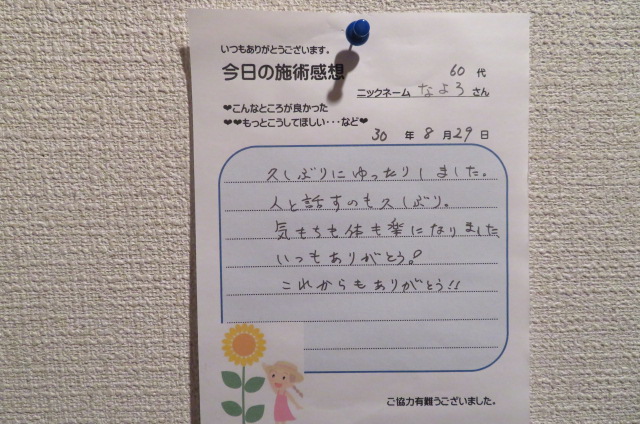 いつもありがとうございます。
今日の施術感想
60 代
ニックネーム なよろ さん
❤こんなところが良かった
❤❤もっとこうしてほしい・・・など❤
30 年 8 月 29 日
久しぶりにゆったりしました。
人と話すのも久しぶり。
気もちも体も楽になりました
いつもありがとう。
これからもありがとう!!
ご協力有難うございました。